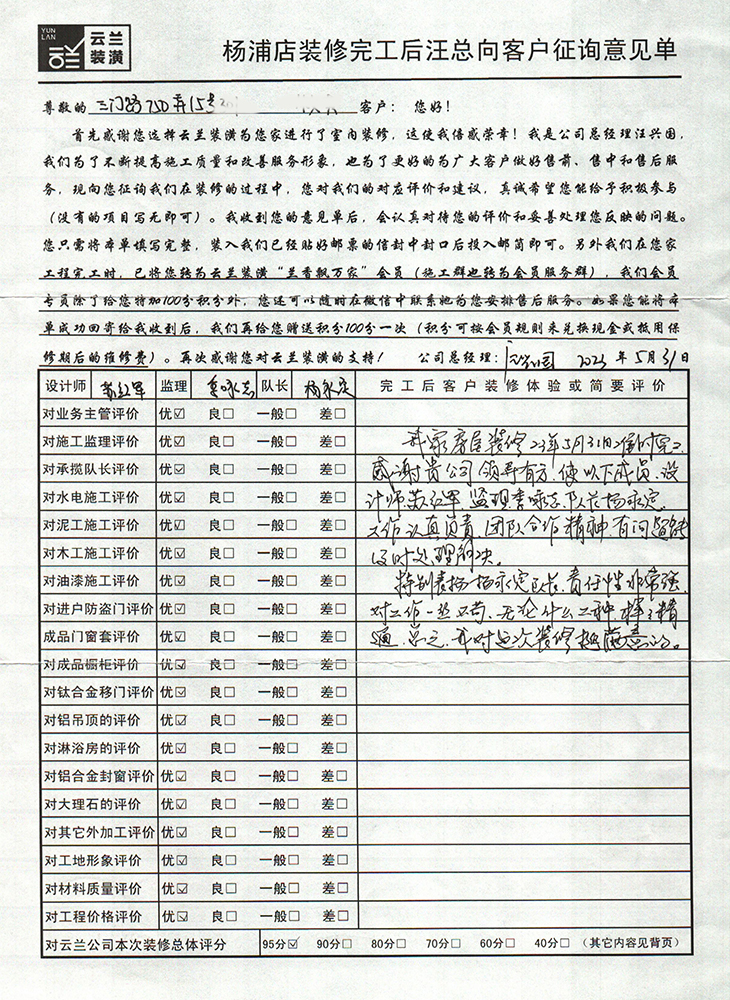 YUN
LAN
云兰
装潢
杨浦店装修完工后汪总向客户征询意见单
尊敬的 三门路750弄15号 客户: 您好!
首先感谢您选择云兰装潢为您家进行了室内装修,这使我倍感荣幸!我是公司总经理汪兴国,
我们为了不断提高施工质量和改善服务形象,也为了更好的为广大客户做好售前、售中和售后服
务,现向您征询我们在装修的过程中,您对我们的对应评价和建议,真诚希望您能给予积极参与
(没有的项目写无即可)。我收到您的意见单后,会认真对待您的评价和妥善处理您反映的问题。
您只需将本单填写完整,装入我们已经贴好邮票的信封中封口后投入邮筒即可。另外我们在您家
工程完工时,已将您转为云兰装潢“兰香飘万家”会员(施工群也转为会员服务群),我们会员
专员除了给您特加100分积分外,您还可以随时在微信中联系她为您安排售后服务。如果您能将本
单成功回寄给我收到后,我们再给您赠送积分100分一次(积分可按会员规则来兑换现金或抵用保
修期后的维修费)。再次感谢您对云兰装潢的支持! 公司总经理:汪兴国 2023 年 5月 31日
设计师 苏红军 监理 李咏志 队长 杨永定 完工后客户装修体验或简要评价
对业务主管评价 优☑ 良□ 一般□ 差□
对施工监理评价 优☑ 良□ 一般□ 差□ 我家房屋装修23年5月31日2个时完工
对承揽队长评价 优☑ 良□ 一般□ 差□ 感谢贵公司领导有方,使以下成员,设
对水电施工评价 优☑ 良□ 一般□ 差□ 计师苏红军 监理李咏志、队长杨永定,
对泥工施工评价 优☑ 良□ 一般□ 差□ 工作认真负责,团队合作精神,有问题能
对木工施工评价 优☑ 良□ 一般□ 差□ 及时处理解决。
对油漆施工评价 优☑ 良□ 一般□ 差□ 特别表扬杨永定队长,责任性非常强,
对进户防盗门评价 优☑ 良□ 一般□ 差□ 对工作一丝不苟,无论什么工种,样样精
成品门窗套评价 优☑ 良□ 一般□ 差□ 通,总之,我对这次装修挺满意的。
对成品橱柜评价 优☑ 良□ 一般□ 差□
对钛合金移门评价 优☑ 良□ 一般□ 差□
对铝吊顶的评价 优☑ 良□ 一般□ 差□
对淋浴房的评价 优☑ 良□ 一般□ 差□
对铝合金封窗评价 优☑ 良□ 一般□ 差□
对大理石的评价 优☑ 良□ 一般□ 差□
对其它外加工评价 优☑ 良□ 一般□ 差□
对工地形象评价 优☑ 良□ 一般□ 差□
对材料质量评价 优☑ 良□ 一般□ 差□
对工程价格评价 优☑ 良□ 一般□ 差□
对云兰公司本次装修总体评分 95分☑ 90分□ 80分□ 70分□ 60分□ 40分□ (其它内容见背页)